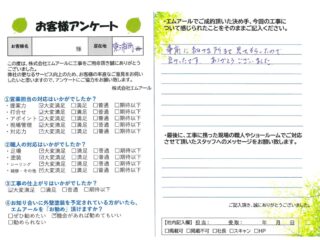 お客様アンケート
お客様名
様
所在地
この度は、株式会社エムアールに工事をご用命頂き誠にありがとうございました。
弊社の更なるサービス向上のため、お客様の率直なご意見をお伺いしたいと思いますので、アンケートにご協力をお願い致します。
株式会社エムアール
①営業担当の対応はいかがでしたか？
・提案力 大変満足 満足 普通 期待以下
・打合せ 大変満足 満足 普通 期待以下
・アポイント 大変満足 満足 普通 期待以下
・現場管理 大変満足 満足 普通 期待以下
・対応力 大変満足 満足 普通 期待以下
②職人の対応はいかがでしたか？
・足場 大変満足 満足 普通 期待以下
・塗装 大変満足 満足 普通 期待以下
・シーリング 大変満足 満足 普通 期待以下
・補修・その他 大変満足 満足 普通 期待以下
③工事の仕上がりはいかがでしたか？
大変満足 満足 普通 期待以下
④お知り合いに外壁塗装を予定されている方がいたら、エムアールを「お勧め」頂けますか？
ぜひ勧めたい 機会があれば勧めてもいい
勧められない
・エムアールでご成約頂いた決め手、今回の工事について感じられたことをそのままご記入ください。
ありがとうございました
・最後に、工事に携った現場の職人やショールームでご対応させて頂いたスタッフへのメッセージをお願い致します。
ご記入頂き、誠にありがとうございました。
【社内記入欄】担当： 受取： 年 月 日
掲載可 掲載不可 回覧 社長 スキャン HP